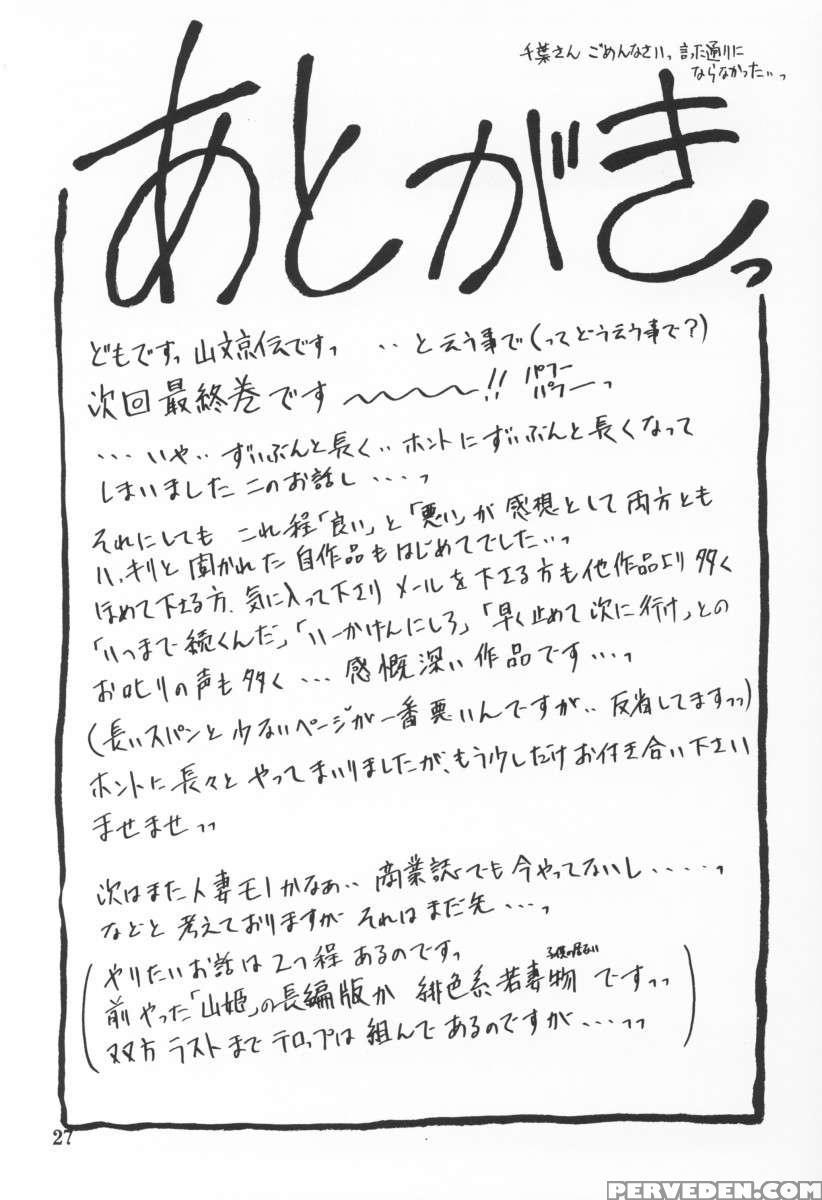 千葉さん ごめんなさいっ 言った通りに
ならなかった‥っ
あとがきっ
どもですっ 山文京伝ですっ ‥と云う事で(ってどう云う事で?)
次回最終巻です〜〜〜〜!! パフー
パフーっ
・・・いや‥ずいぶんと長く‥ホントにずいぶんと長くなって
しまいましたこのお話し・・・・っ
それにしても これ程「良い」と「悪い」が 感想として両方とも
ハッキリと聞かれた自作品もはじめてでした‥っ
ほめて下さる方、気に入って下さり メールを下さる方も他作品より多く
「いつまで続くんだ」「いーかげんにしろ」「早く止めて次に行け」との
お叱りの声も多く・・・感慨深い作品です・・・っ
(長いスパンと少ないページが一番悪いんですが‥反省してますっっ)
ホントに長々とやってまいりましたが、もう少しだけお付き合い下さい
ませませっっ
次はまた人妻モノかなぁ‥商業誌でも今やってないし・・・・・っ
などと考えておりますが それはまだ先・・・っ
やりたいお話は2つ程あるのですっ
前やった「山姫」の長編版か 緋色系若妻物ですっっ
双方ラストまでテロップは組んであるのですが・・・っっ
27
PERVEDEN.COM